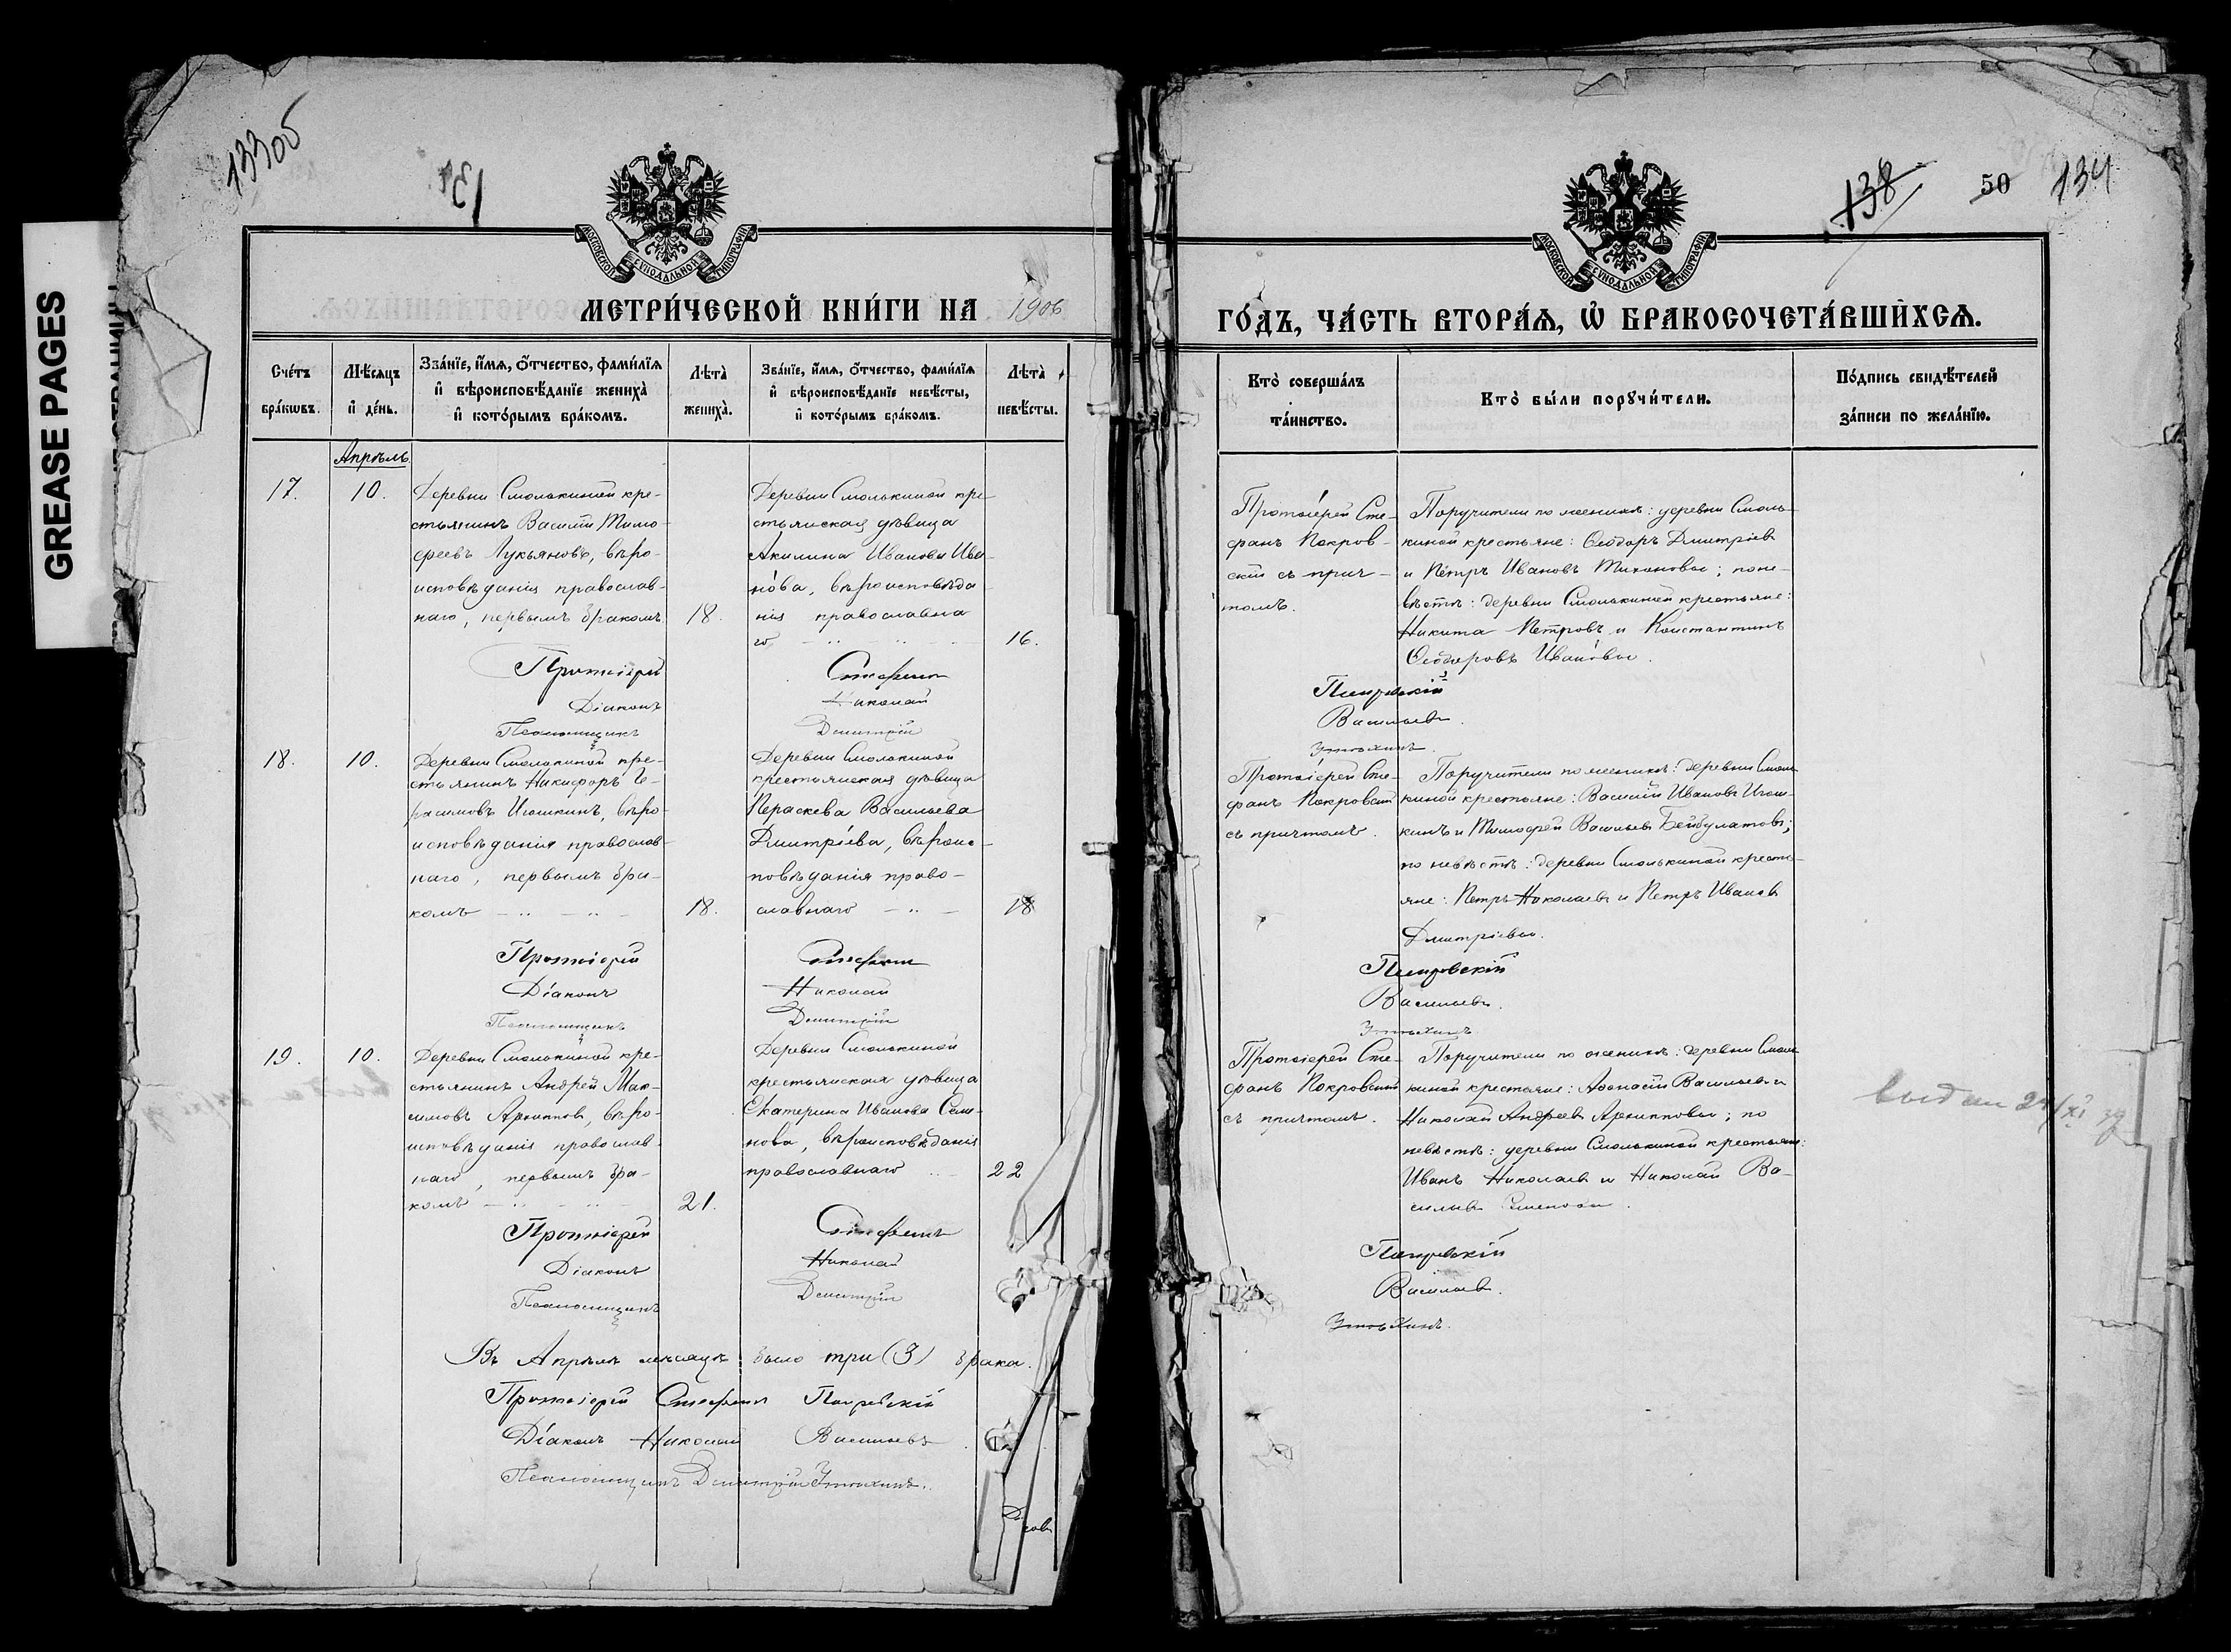 GREASE PAGES
133об
МОСКОВСКОЙ СѴНОДАЛЬНОЙ ТИПОГРАФІИ
МЕТРИ́ЧЕСКОЙ КНИ́ГИ НА 1906
Сче́тъ бра́кѡвъ.
Мѣ́сяцъ и҆ де́нь.
Зва́нїе, и҆́мѧ, ѻ҆́тчество, фами́лїѧ
и҆ вѣроисповѣ́данїе жениха̀
и҆ кото́рымъ бра́комъ.
Лѣта̀ жениха̀.
Зва́нїе, и҆́мѧ, ѻ҆́тчество, фами́лїѧ
и҆ вѣроисповѣ́данїе невѣ́сты,
и҆ кото́рымъ бра́комъ.
Лѣта̀ невѣ́сты.
Апрѣль
17.
10.
Деревни Смолькиной кре-
стьянинъ Василій Тимо-
феевъ Лукьяновъ, вѣро-
исповѣданія православ-
наго, первымъ бракомъ
18.
Деревни Смолькиной кре-
стьянская дѣвица
Акилина Иванова Ива-
нова, вѣроисповѣда-
нія православна-
го
16.
Протоіерей Стефанъ
Діаконъ Николай
Псаломщикъ Димитрій
18.
10.
Деревни Смолькиной кре-
стьянинъ Никифоръ Ге-
расимовъ Игошкинъ, вѣро-
исповѣданія православ-
наго, первымъ бра-
комъ
18.
Деревни Смолькиной
крестьянская дѣвица
Параскева Васильева
Дмитріева, вѣроис-
повѣданія право-
славнаго
18
Протоіерей Стефанъ
Діаконъ Николай
Псаломщикъ Димитрій
19.
10.
Деревни Смолькиной кре-
стьянинъ Андрей Мак-
симовъ Архиповъ, вѣро-
исповѣданія православ-
наго, первымъ бра-
комъ
21.
Деревни Смолькиной
крестьянская дѣвица
Екатерина Иванова Семе-
нова, вѣроисповѣданія
православнаго
22
Протоіерей Стефанъ
Діаконъ Николай
Псаломщикъ Димитрій
Въ Апрѣлѣ мѣсяцѣ было три (3) брака.
Протоіерей Стефанъ Покровскій
Діаконъ Николай Васильевъ
Псаломщикъ Димитрій
138
50
134
МОСКОВСКОЙ СѴНОДАЛЬНОЙ ТИПОГРАФІИ
ГО́ДЪ, ЧА́СТЬ ВТОРА́Ѧ, Ѡ҆ БРАКОСОЧЕТА́ВШИХСѦ.
Кто̀ соверша́лъ
та́инство.
Кто̀ бы́ли порꙋчи́тели.
По́дпись свидѣ́телей
за́писи по жела́нїю.
Протоіерей Сте-
фанъ Покров-
скій съ прич-
томъ.
Поручители по женихѣ: деревни Смоль-
киной крестьяне: Ѳеодоръ Дмитріевъ
и Петръ Ивановъ Тихоновы; по не-
вѣстѣ: деревни Смолькиной крестьяне:
Никита Петровъ и Константинъ
Ѳеодоровъ Ивановы.
Покровскій
Васильевъ.
Протоіерей Сте-
фанъ Покровскій
съ причтомъ.
Поручители по женихѣ: деревни Смоль-
киной крестьяне: Василій Ивановъ Игош-
кинъ и Тимофей Васильевъ Бейбулатовъ;
по невѣстѣ: деревни Смолькиной кресть-
яне: Петръ Николаевъ и Петръ Ивановъ
Дмитріевы.
Покровскій
Васильевъ.
Протоіерей Сте-
фанъ Покровскій
съ причтомъ.
Поручители по женихѣ: деревни Смоль-
киной крестьяне: Аѳанасій Васильевъ и
Николай Андреевъ Архиповы; по
невѣстѣ: деревни Смолькиной крестьяне:
Иванъ Николаевъ и Николай Ва-
сильевъ Семеновы.
Покровскій
Васильевъ.